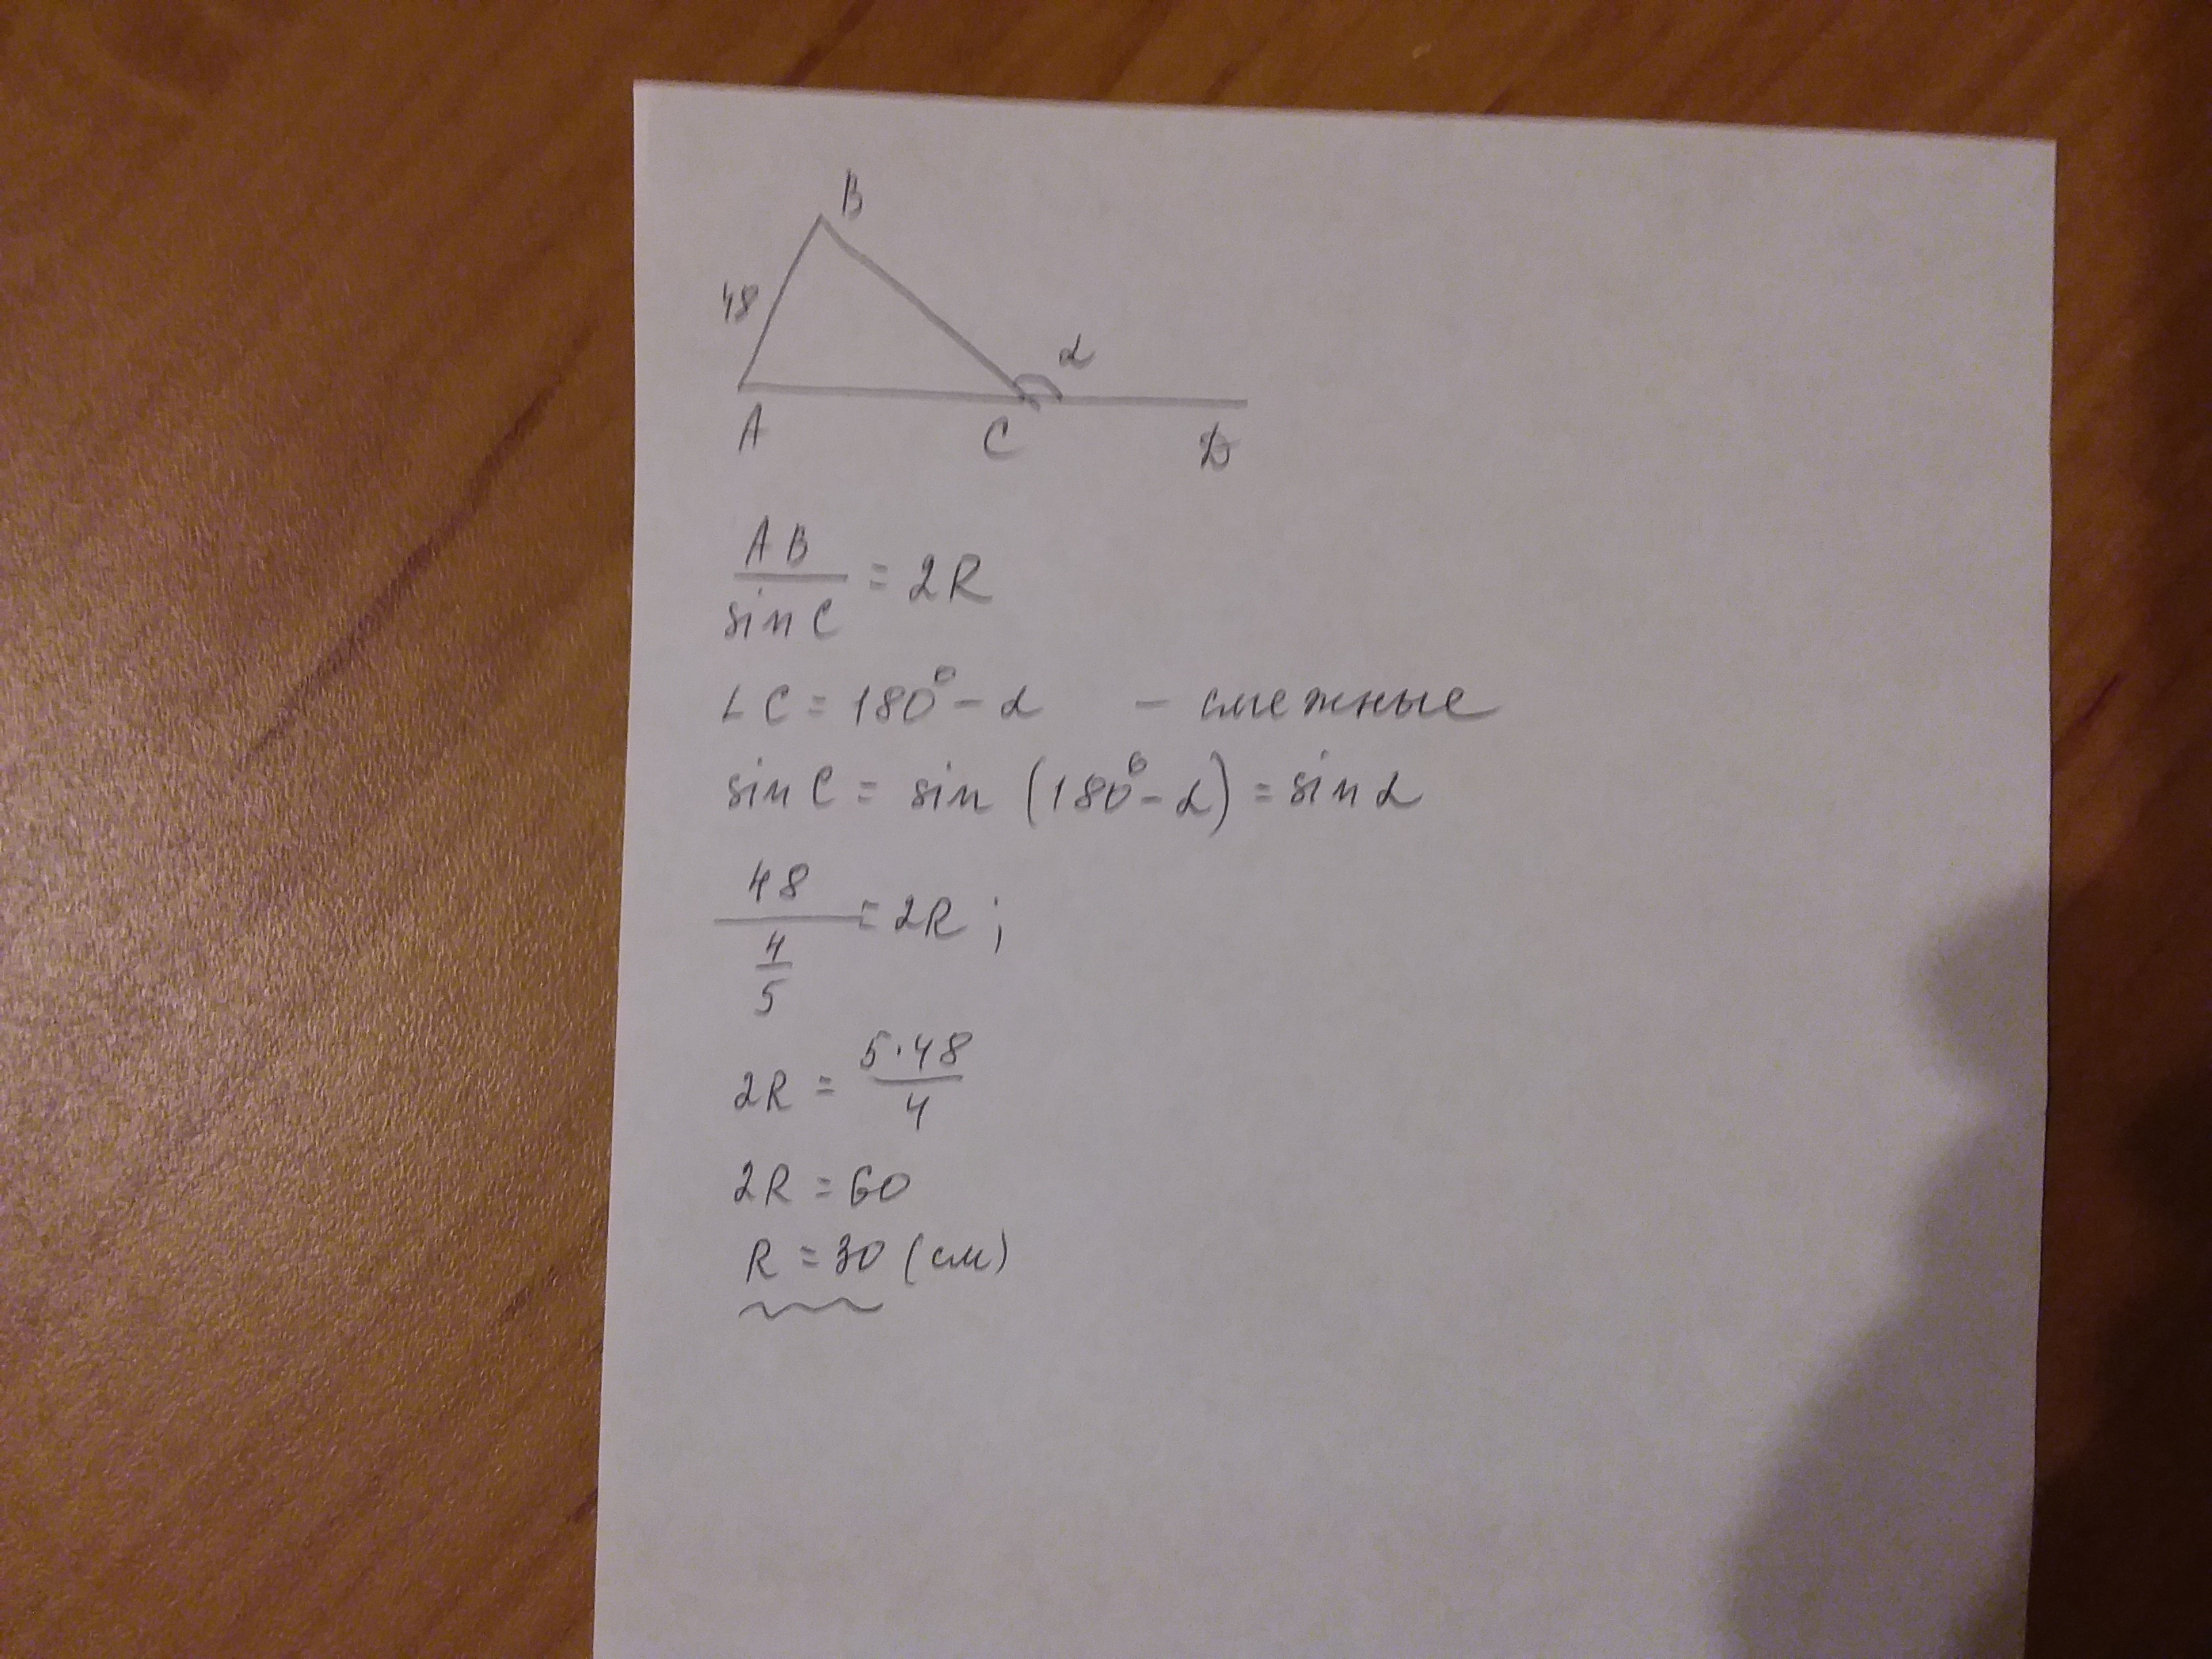 B
48
α
A C D
AB/sin C = 2R
∠C = 180° - α - смежные
sin C = sin (180° - α) = sin α
48/(4/5) = 2R;
2R = 5·48/4
2R = 60
R = 30 (см)